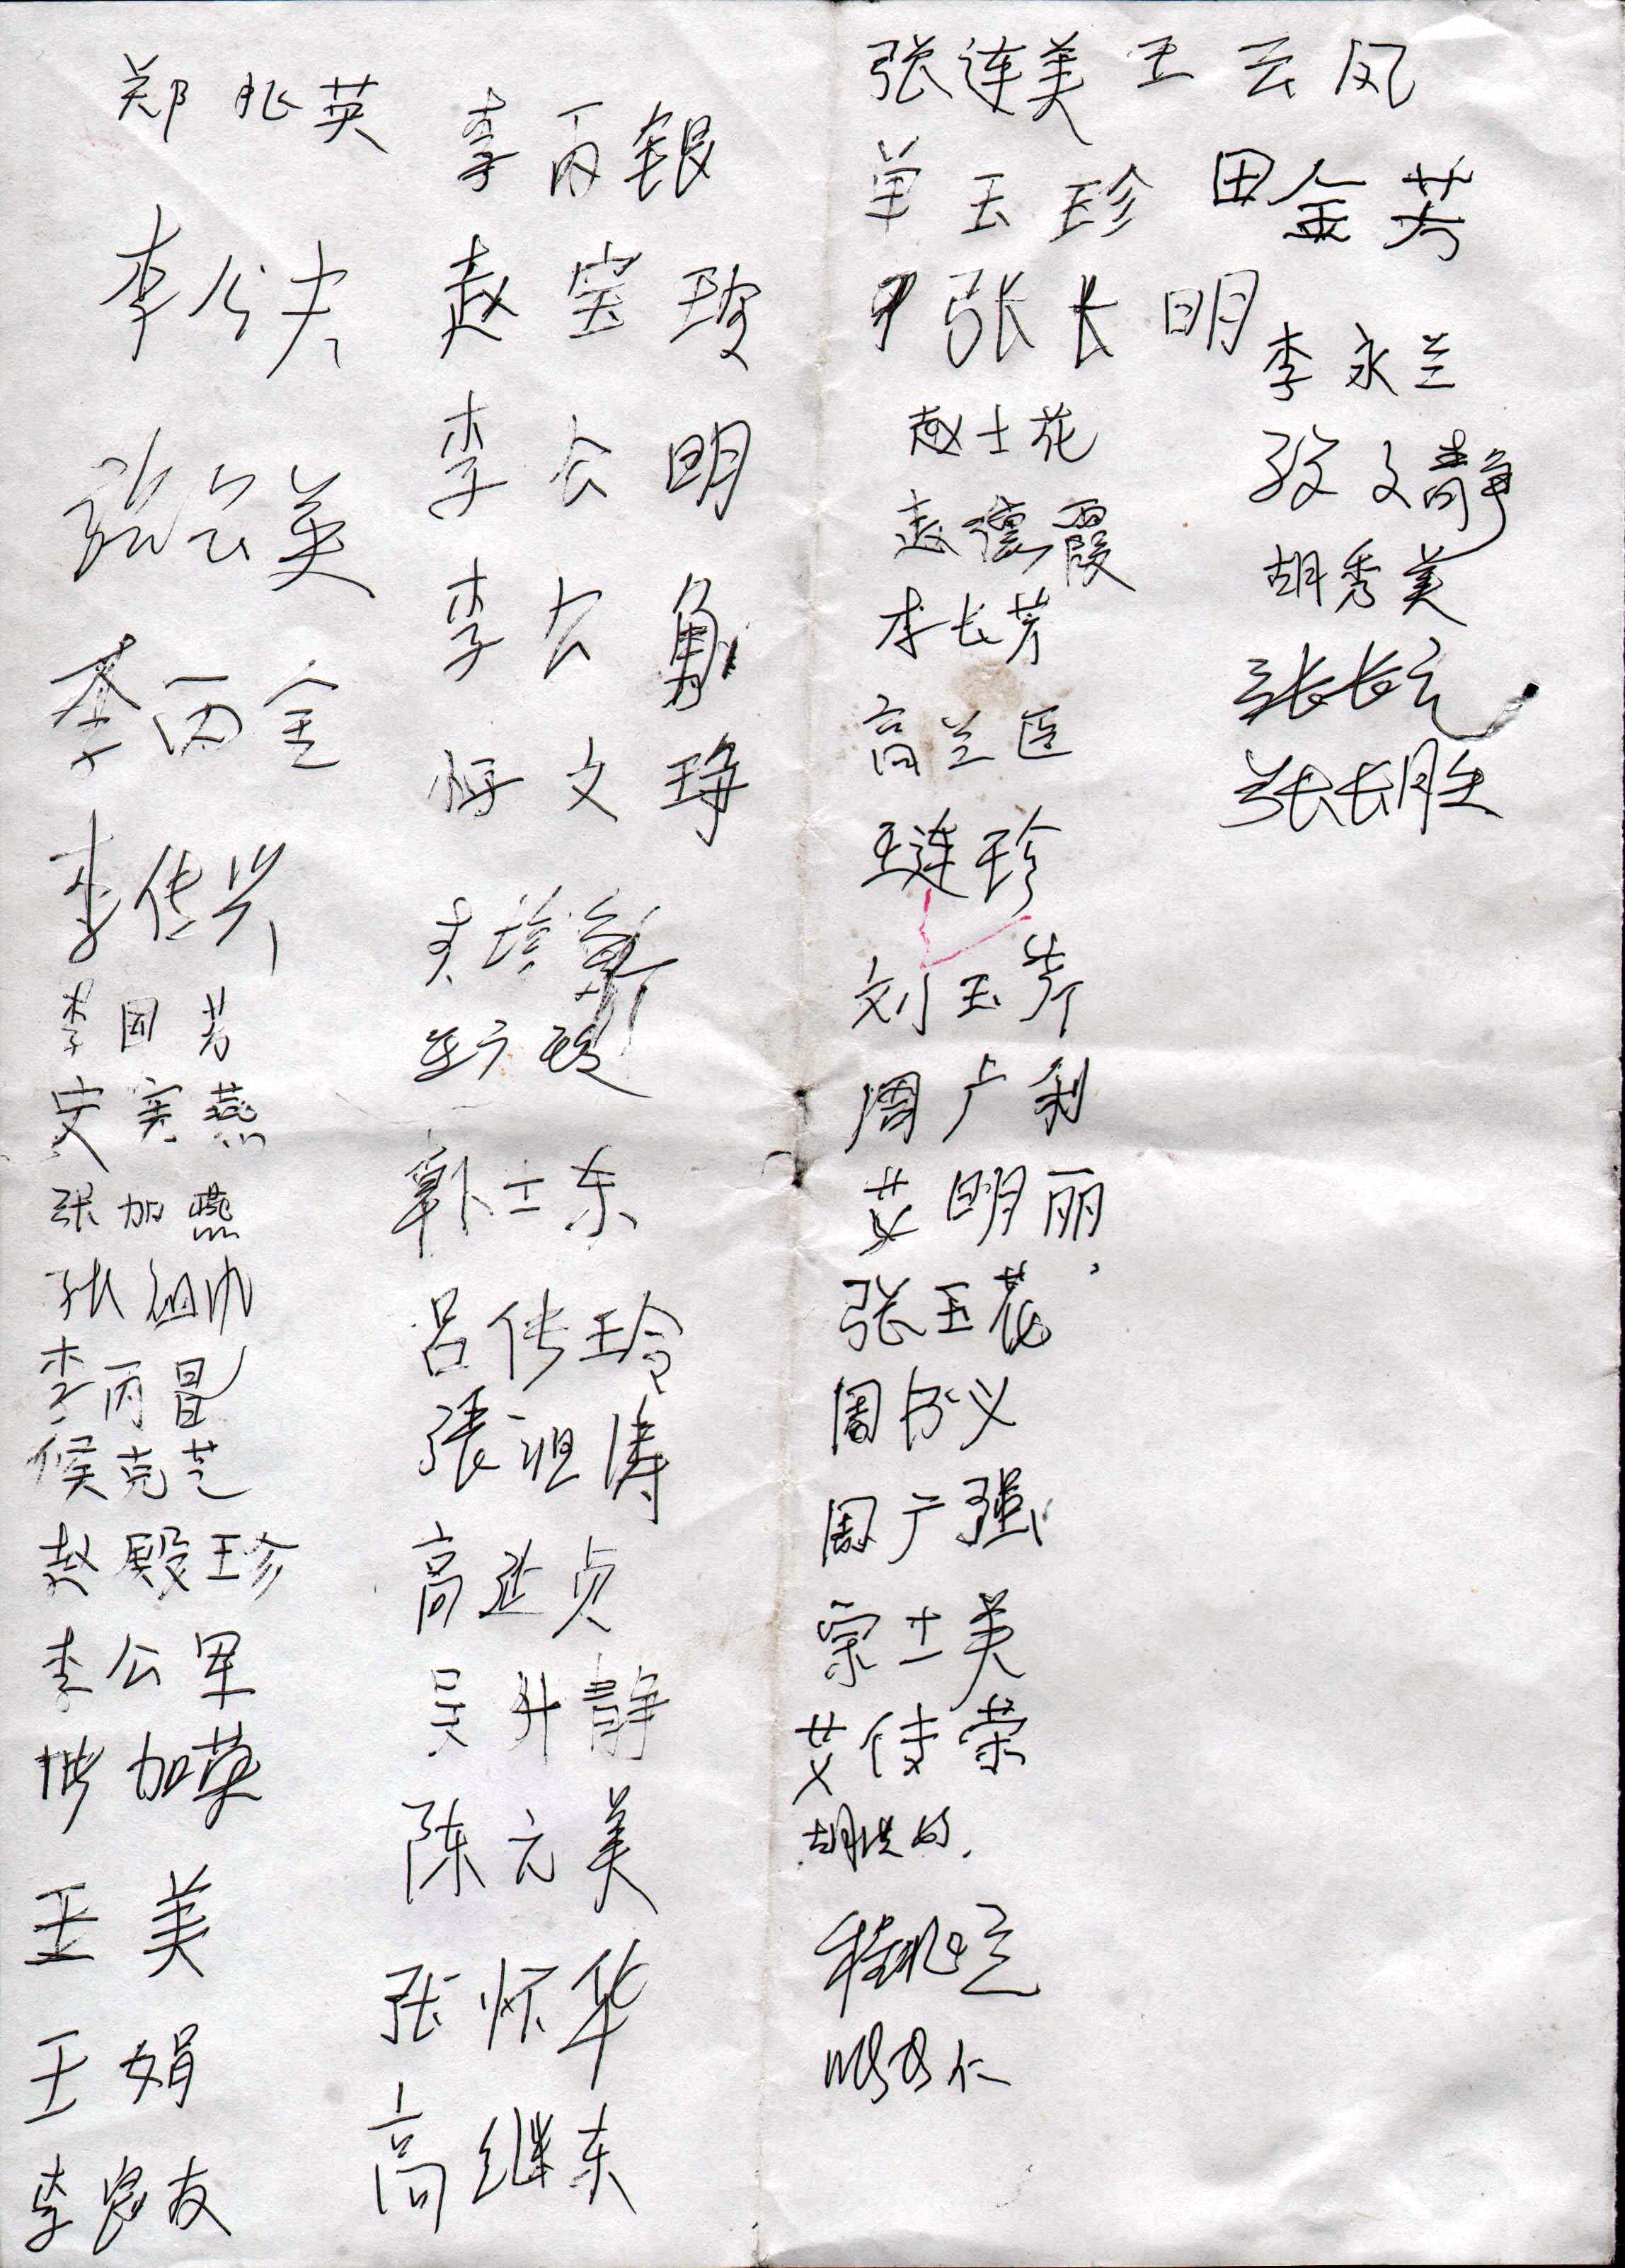 郑兆英
李公夫
张公英
李丙全
李传兴
李因芳
安宪燕
张加燕
张祖
李丙昆
侯克芝
赵殿珍
李公军
加英
王美
王娟
李良友
李丙银
赵宝玲
李公明
李公勇
文
珍
广
郭士东
吕传玲
張祖涛
高延贞
吴升静
陈元美
张怀华
高继东
张连美 王云凤
单玉珍 田金芳
张长明
李永兰
赵士花
文静
赵德霞
胡秀美
李长芳
张长
高兰臣
张长胜
王连珍
刘玉芹
周广利
艾明丽
张玉花
周书义
周广强
宗士美
艾侍荣
胡
程
仁